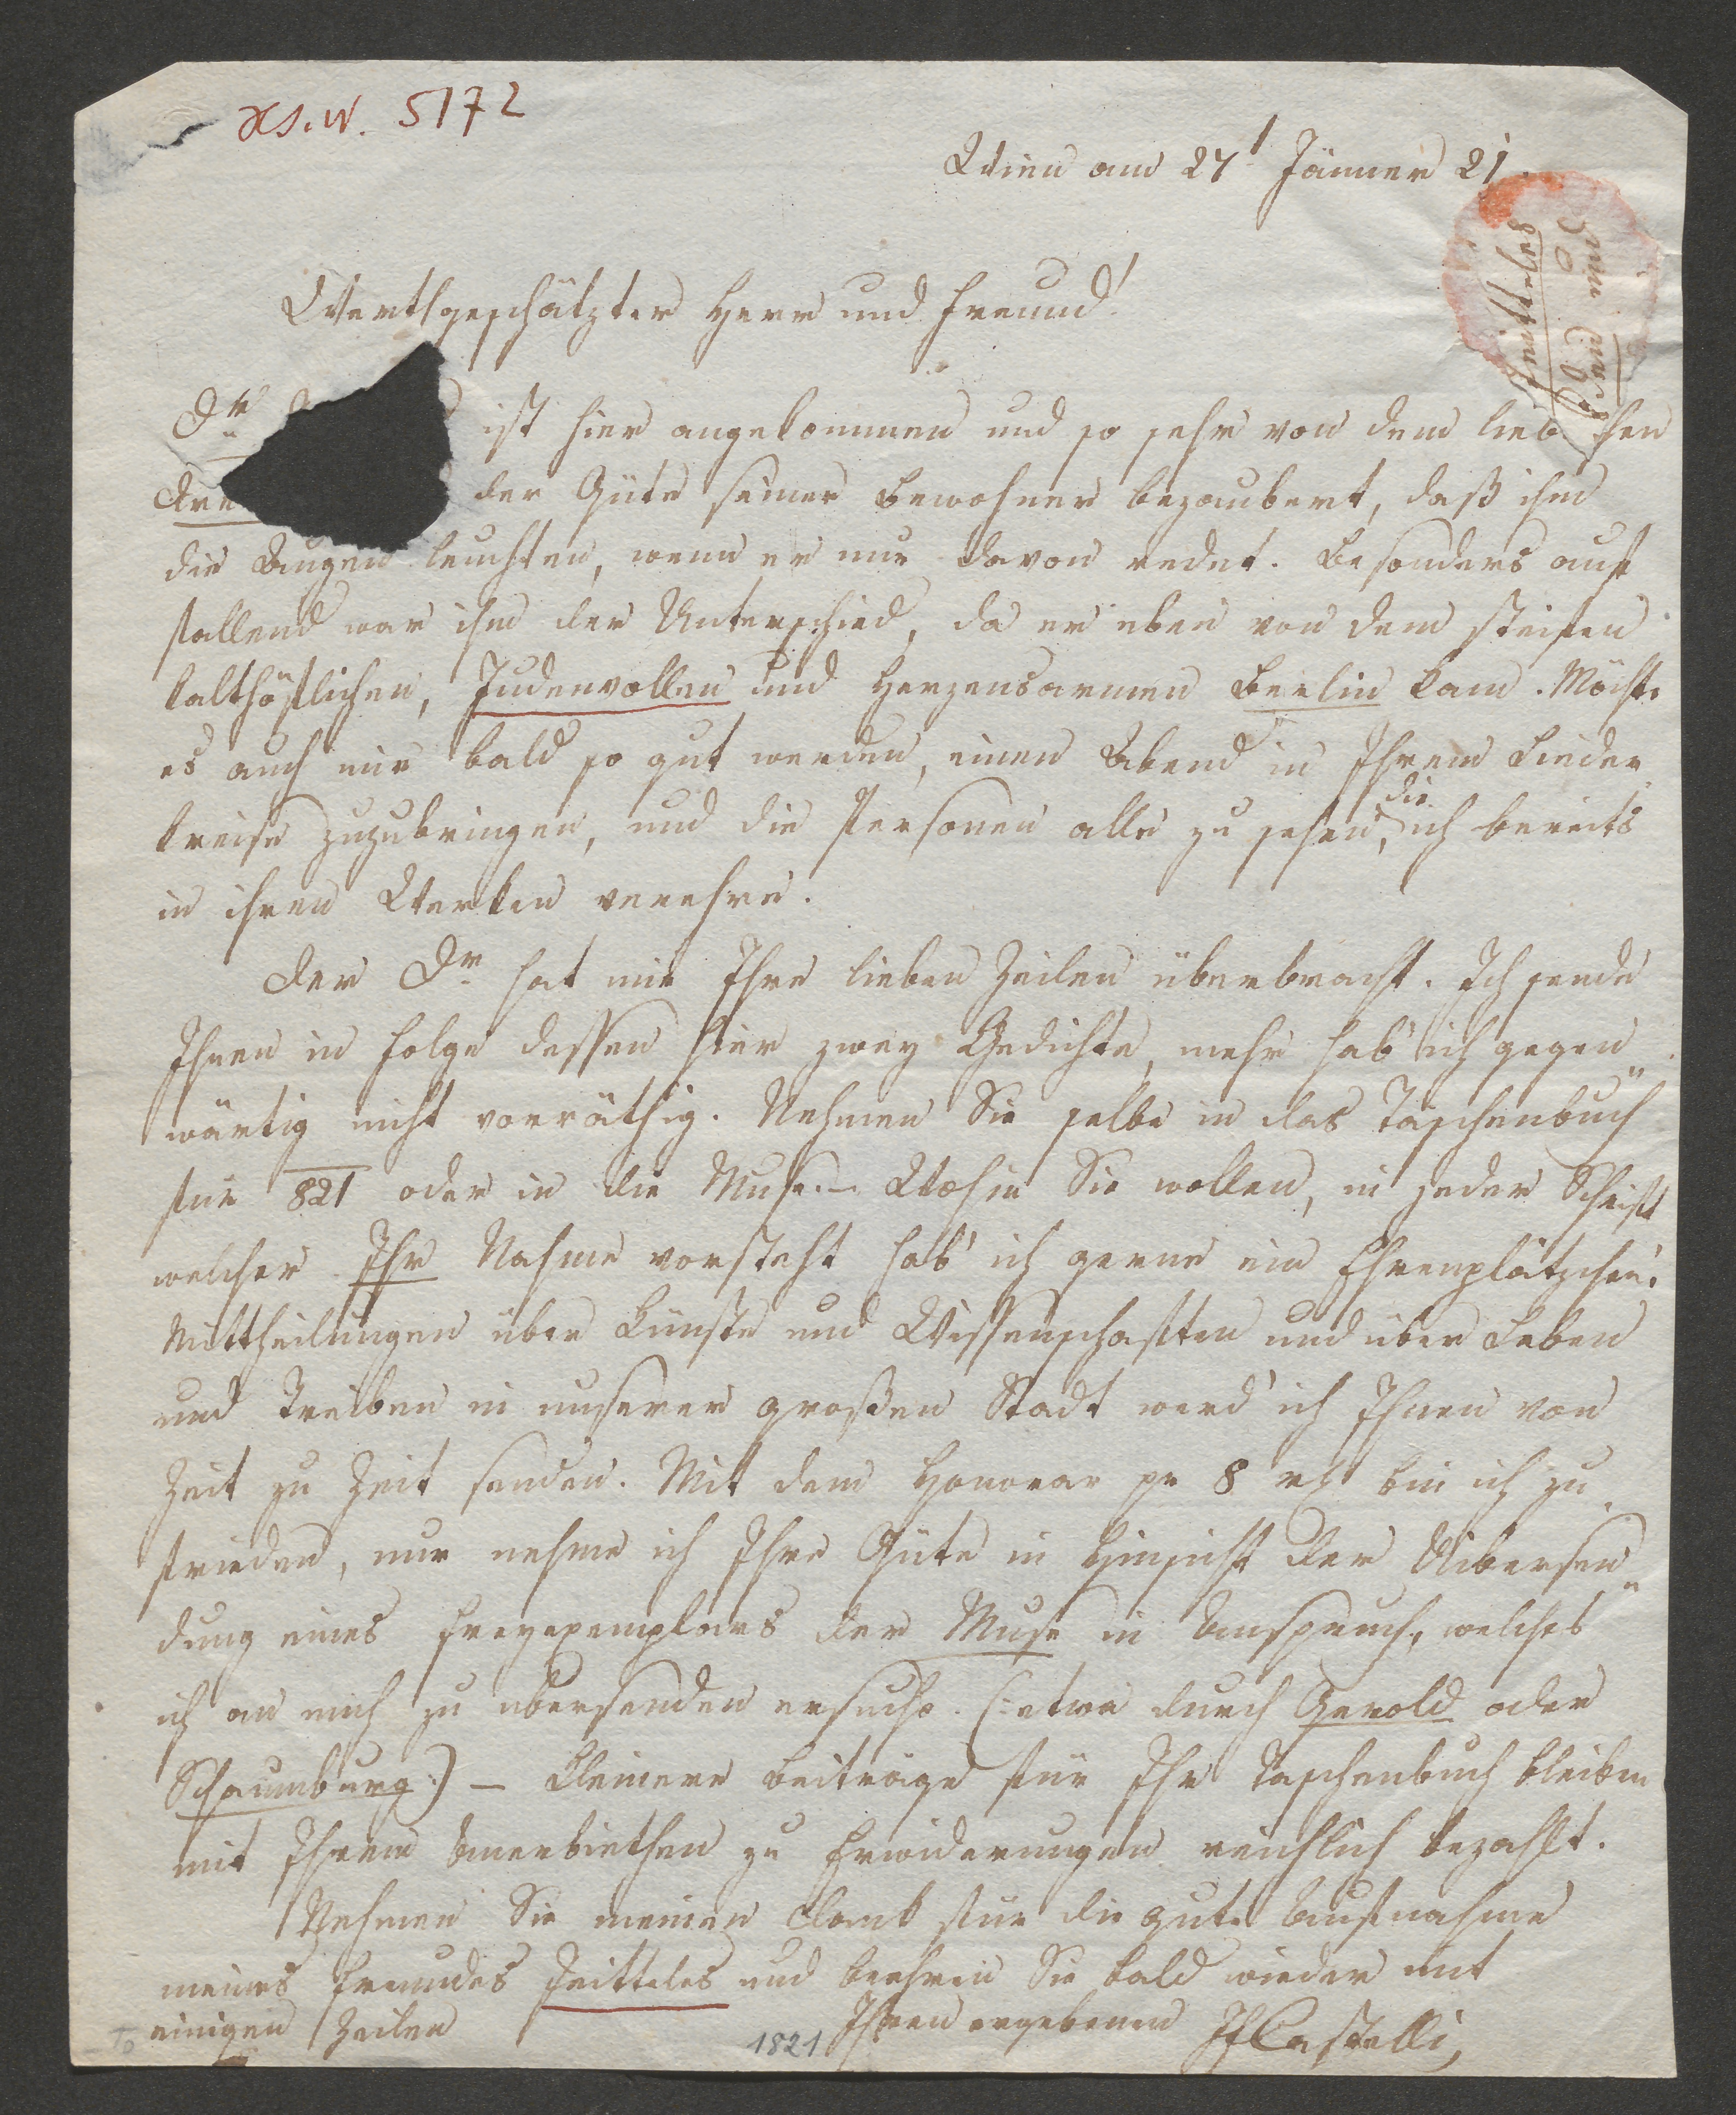 XS.W. 5172
Wien am 27t Jänner 21.
Werthgeschätzter Herr und Freund!
Dr ist hier angekommen und so sehr von dem lieb
Dre der Güte seiner Bewohner bezaubert, daß ihm
die Augen leuchten, wenn er nur davon redet. Besonders auf
fallend war ihm der Unterschied, da er eben von dem steifen
kalthöflichen, Judenvollen und Herzensarmen Berlin kam. Möchte
es auch mir bald so gut werden, einen Abend in Ihrem Lieder
kreise zuzubringen, und die Personen alle zu sehen, die ich bereits
in ihren Werken verehre.
Der Dr hat mir Ihre lieben Zeilen überbracht. Ich sende
Ihnen in Folge dessen hier zwey Gedichte, mehr hab ich gegen
wärtig nicht vorräthig. Nehmen Sie selbe in das Taschenbuch
für 821 oder in die Muse. – Wohin Sie wollen, in jeder Schrift
welcher Ihr Nahme vorsteht hab' ich gerne ein Ehrenplätzchen.
Mittheilungen über Künste und Wissenschaften und über Leben
und Treiben in unserer großen Stadt werd' ich Ihnen von
Zeit zu Zeit senden. Mit dem Honorar pr 8 rh bin ich zu
frieden, nur nehme ich Ihre Güte in Hinsicht der Uibersen
dung eines Freyexemplares der Muse in Anspruch, welches
ich an mich zu übersenden ersuche. (: etwa durch Gerold oder
Schaumburg :) – Kleinere Beiträge für Ihr Taschenbuch bleiben
mit Ihrem Anerbiethen zu Erwiderungen reichlich bezahlt.
Nehmen Sie meinen Dank für die gute Aufnahme
meines Freundes Jeitteles und beehren Sie bald wieder mit
einigen Zeilen
Ihren ergebenen JFCastelli
1821
Jeitteles